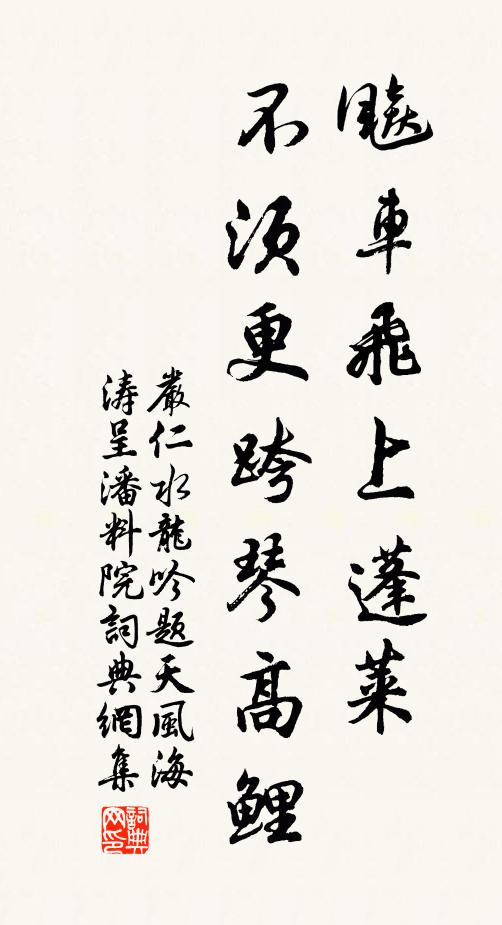 飈車飛上蓬萊
不須更跨琴高鯉
嚴仁水龍吟題天風海
涛呈潘料院詞典網集
詞典
网印